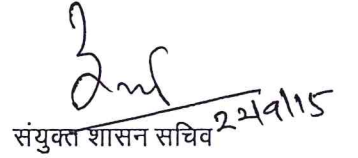 संयुक्त शासन सचिव 22/9/15